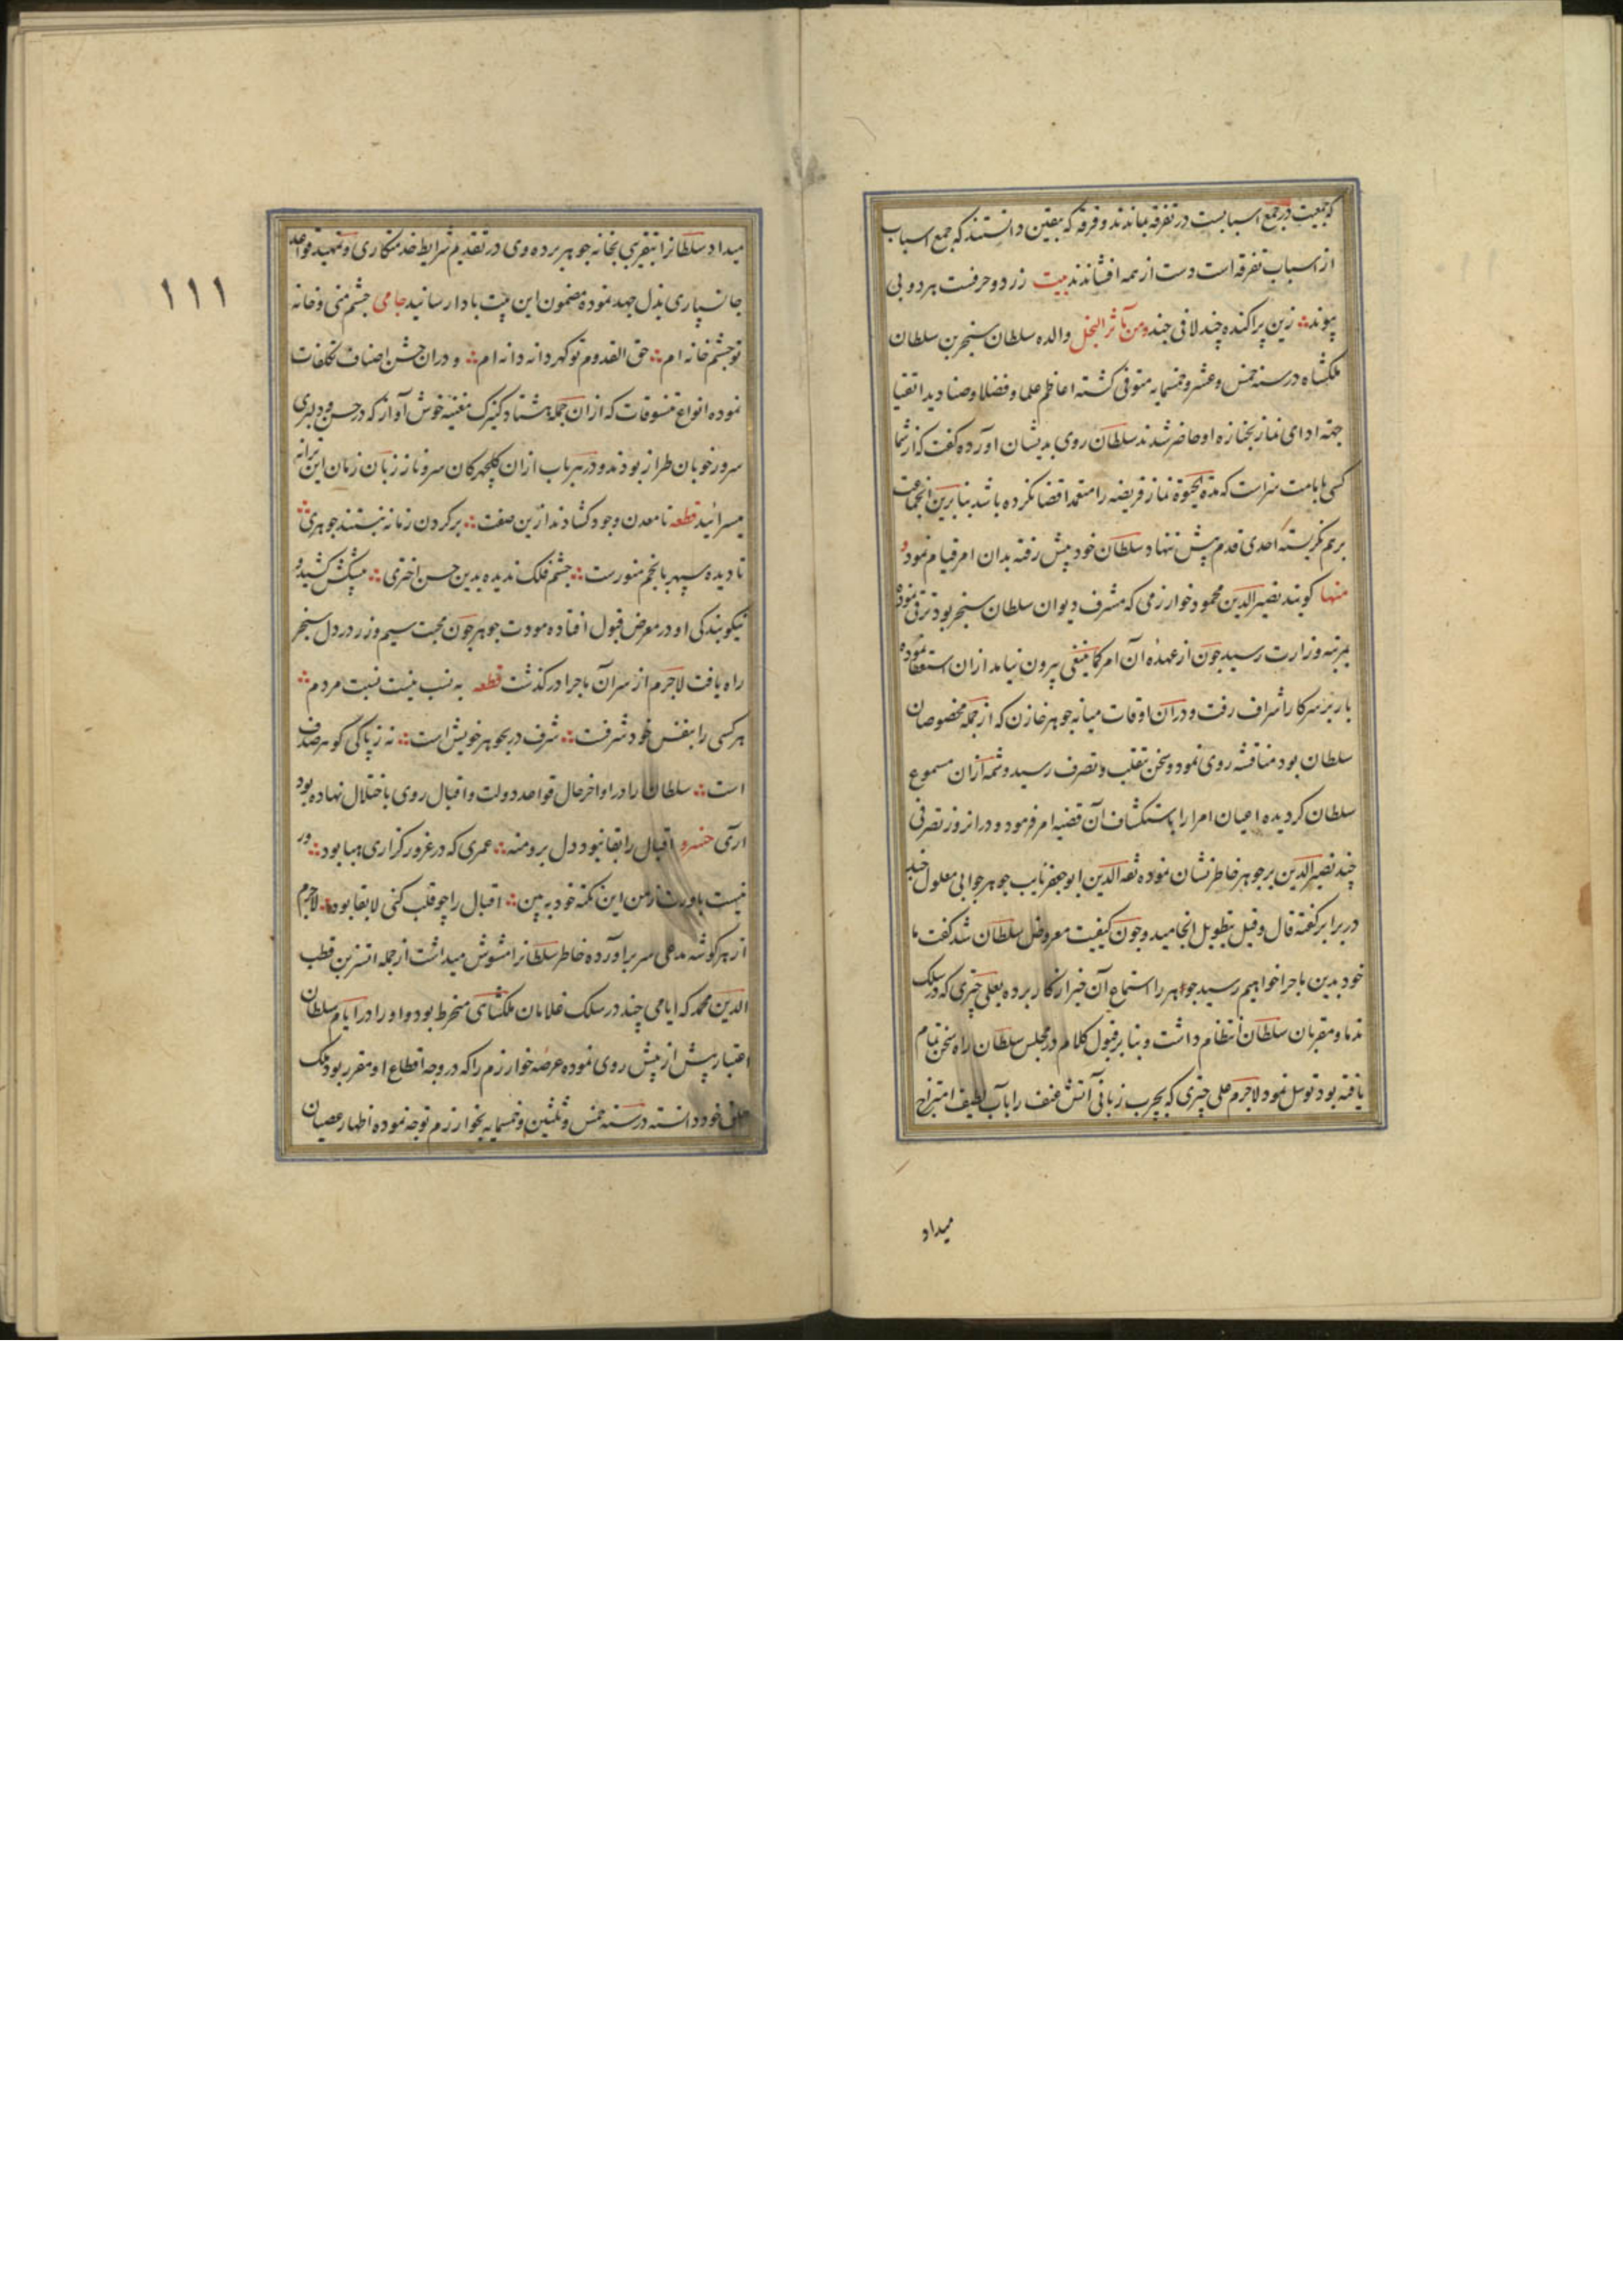 که جمعیت در جمع اسبابست در تفرقه بماندند و فرقه که بیقین دانستند که جمع اسباب
از اسباب تفرقه است دست از همه افشاندند بیت زر دو حرفست هر دو بی
پیوند زین پراکنده چند لافی چند ومن مآثر النخل والده سلطان سنجر بن سلطان
ملکشاه در سنه خمس و عشر و خمسمایه متوفی کشته اعاظم علما و فضلا و صنادید اتقیا
جهة ادای نماز بجنازه او حاضر شدند سلطان روی بدیشان اورده کفت که از شما
کسی بامامت سزاست که مدة الحیوة نماز فریضه را متعمدا قضا نکرده باشد بنابرین انجماعت
برهم نکریسته احدی قدم پیش ننهاد سلطان خود پیش رفته بدان امر قیام نمود و
منها کویند نصیر الدین محمود خوارزمی که مشرف دیوان سلطان سنجر بود ترقی نموده
بمرتبه وزارت رسید چون از عهده آن امر کما ینبغی بیرون نیامد ازان استعفا نموده
باز بر سر کار اشراف رفت و دران اوقات میانه جوهر خازن که از جمله مخصوصان
سلطان بود مناقشه روی نمود و سخن تقلب و تصرف رسید و شمه ازان مسموع
سلطان کردیده اعیان امرا را باستکشاف آن قضیه امر فرمود و درانروز تصرفی
چند نصیر الدین بر جوهر خاطر نشان نموده ثقه الدین ابو جعفر نایب جوهر جوابی معلول چند
در برابر کفته قال و قیل بتطویل انجامید و چون کیفیت معروض سلطان شد کفت ما
خود بدین ماجرا خواهیم رسید جوهر را استماع آن خبر از کار برده بعلی چتری که در سلک
ندما و مقربان سلطان انتظام داشت و بنابر قبول کلام در مجلس سلطان راه سخن تمام
یافته بود توسل نمود لاجرم علی چتری که بچرب زبانی آتش عنف را باب لطیف امتزاج
میداد
۱۱۱
میداد سلطانرا بتقریبی بخانه جوهر برده وی در تقدیم شرایط خدمتکاری و تمهید قواعد
جانسپاری بذل جهد نموده مضمون این بیت بادا رسانید جامی چشم منی و خانه
تو چشم خانه ام حق القدوم تو کهر دانه دانه ام و دران جشن اصناف تکلفات
نموده انواع تنسوقات که ازان جمله هشتاد کنیزک مغنیه خوش آواز که در حسن و دلبری
سرور خوبان طراز بودند و در هر باب ازان کلچهرکان سرو ناز زبان زمان این ترانه
میسرائید قطعه تا معدن وجود کشادند ازین صفت بر کردن زمانه نبستند جوهری
تا دیده سپهر بانجم منورست چشم فلک ندیده بدین حسن اختری پیشکش کشید و
نیکو بندکی او در معرض قبول افتاده مودت جوهر چون محبت سیم و زر در دل سنجر
راه یافت لاجرم از سر آن ماجرا درکذشت قطعه به نسب نیست نسبت مردم
هر کسی را بنفس خود شرفست شرف در بجوهر خویش است نه ز پاکی کوهر صدف
است سلطان را در اواخر حال قواعد دولت و اقبال روی باختلال نهاده بود
آری خسرو اقبال را بقا نبود دل برو منه عمری که در غرور کزاری هبا بود ور
نیست باورت ز من این نکته خود ببین اقبال را چو قلب کنی لابقا بود لاجرم
از هر کوشه مدعی سر براورده خاطر سلطانرا مشوش میداشت ازجمله اتسز بن قطب
الدین محمد که ایامی چند در سلک غلامان ملکشاهی منخرط بود و او را در ایام سلطان
اعتبار بیش از پیش روی نموده عرصه خوارزم را که در وجه اقطاع او مقرر بود ملک
طلق خود دانسته در سنه خمس و ثلثین و خمسمایه بخوارزم توجه نموده اظهار عصیان